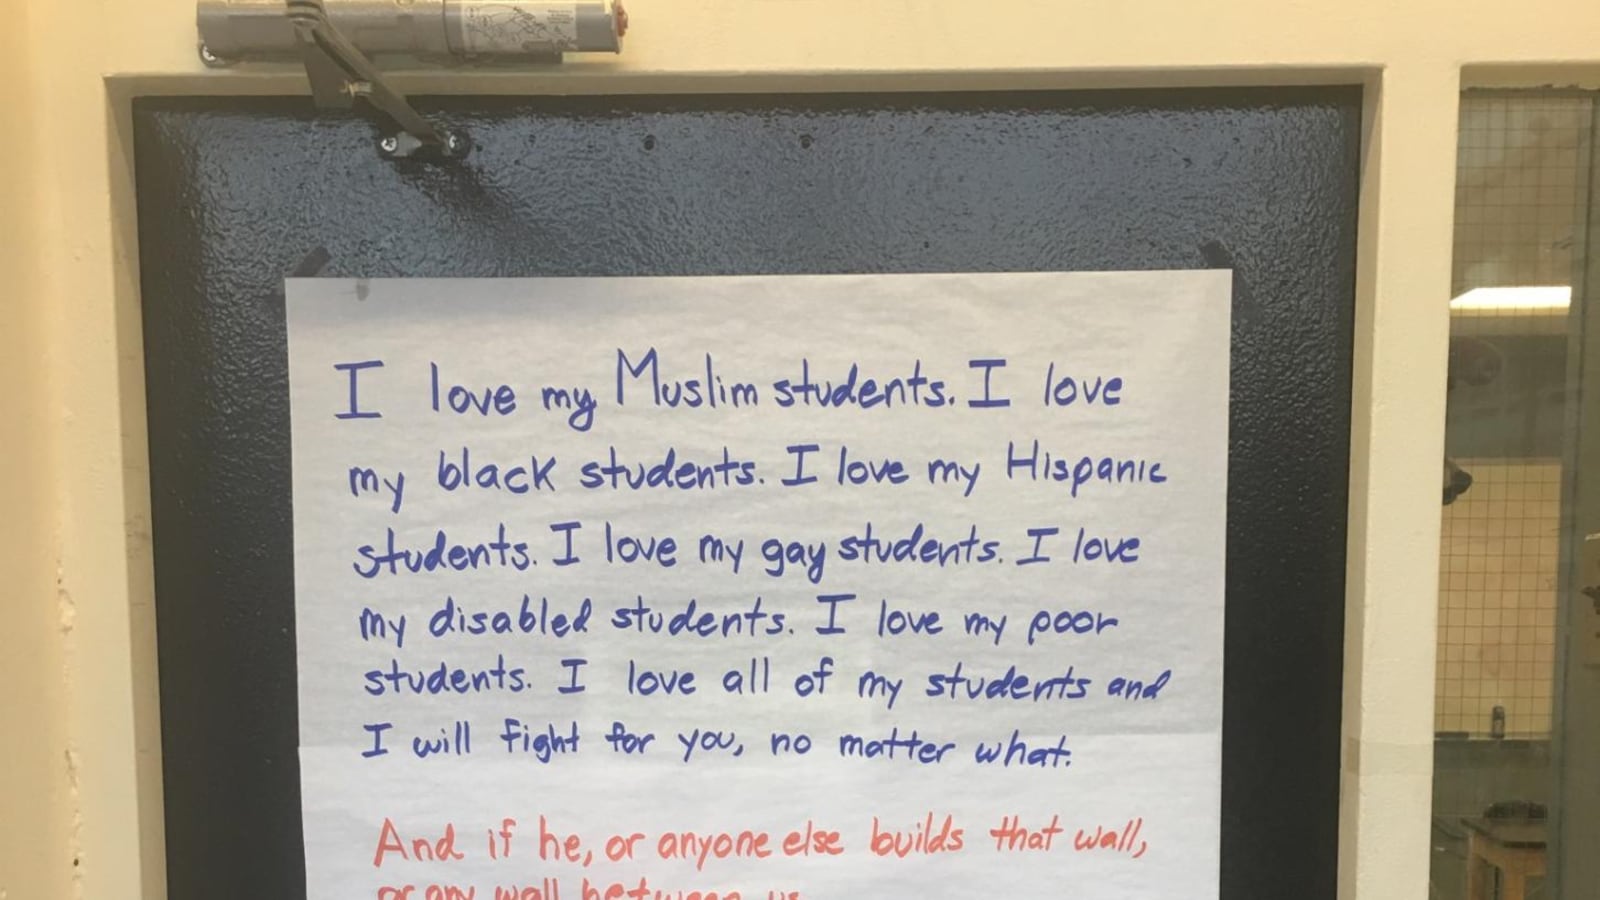 I love my Muslim students. I love
my black students. I love my Hispanic
students. I love my gay students. I love
my disabled students. I love my poor
students. I love all of my students and
I will fight for you, no matter what.
And if he, or anyone else builds that wall,
or any wall between us